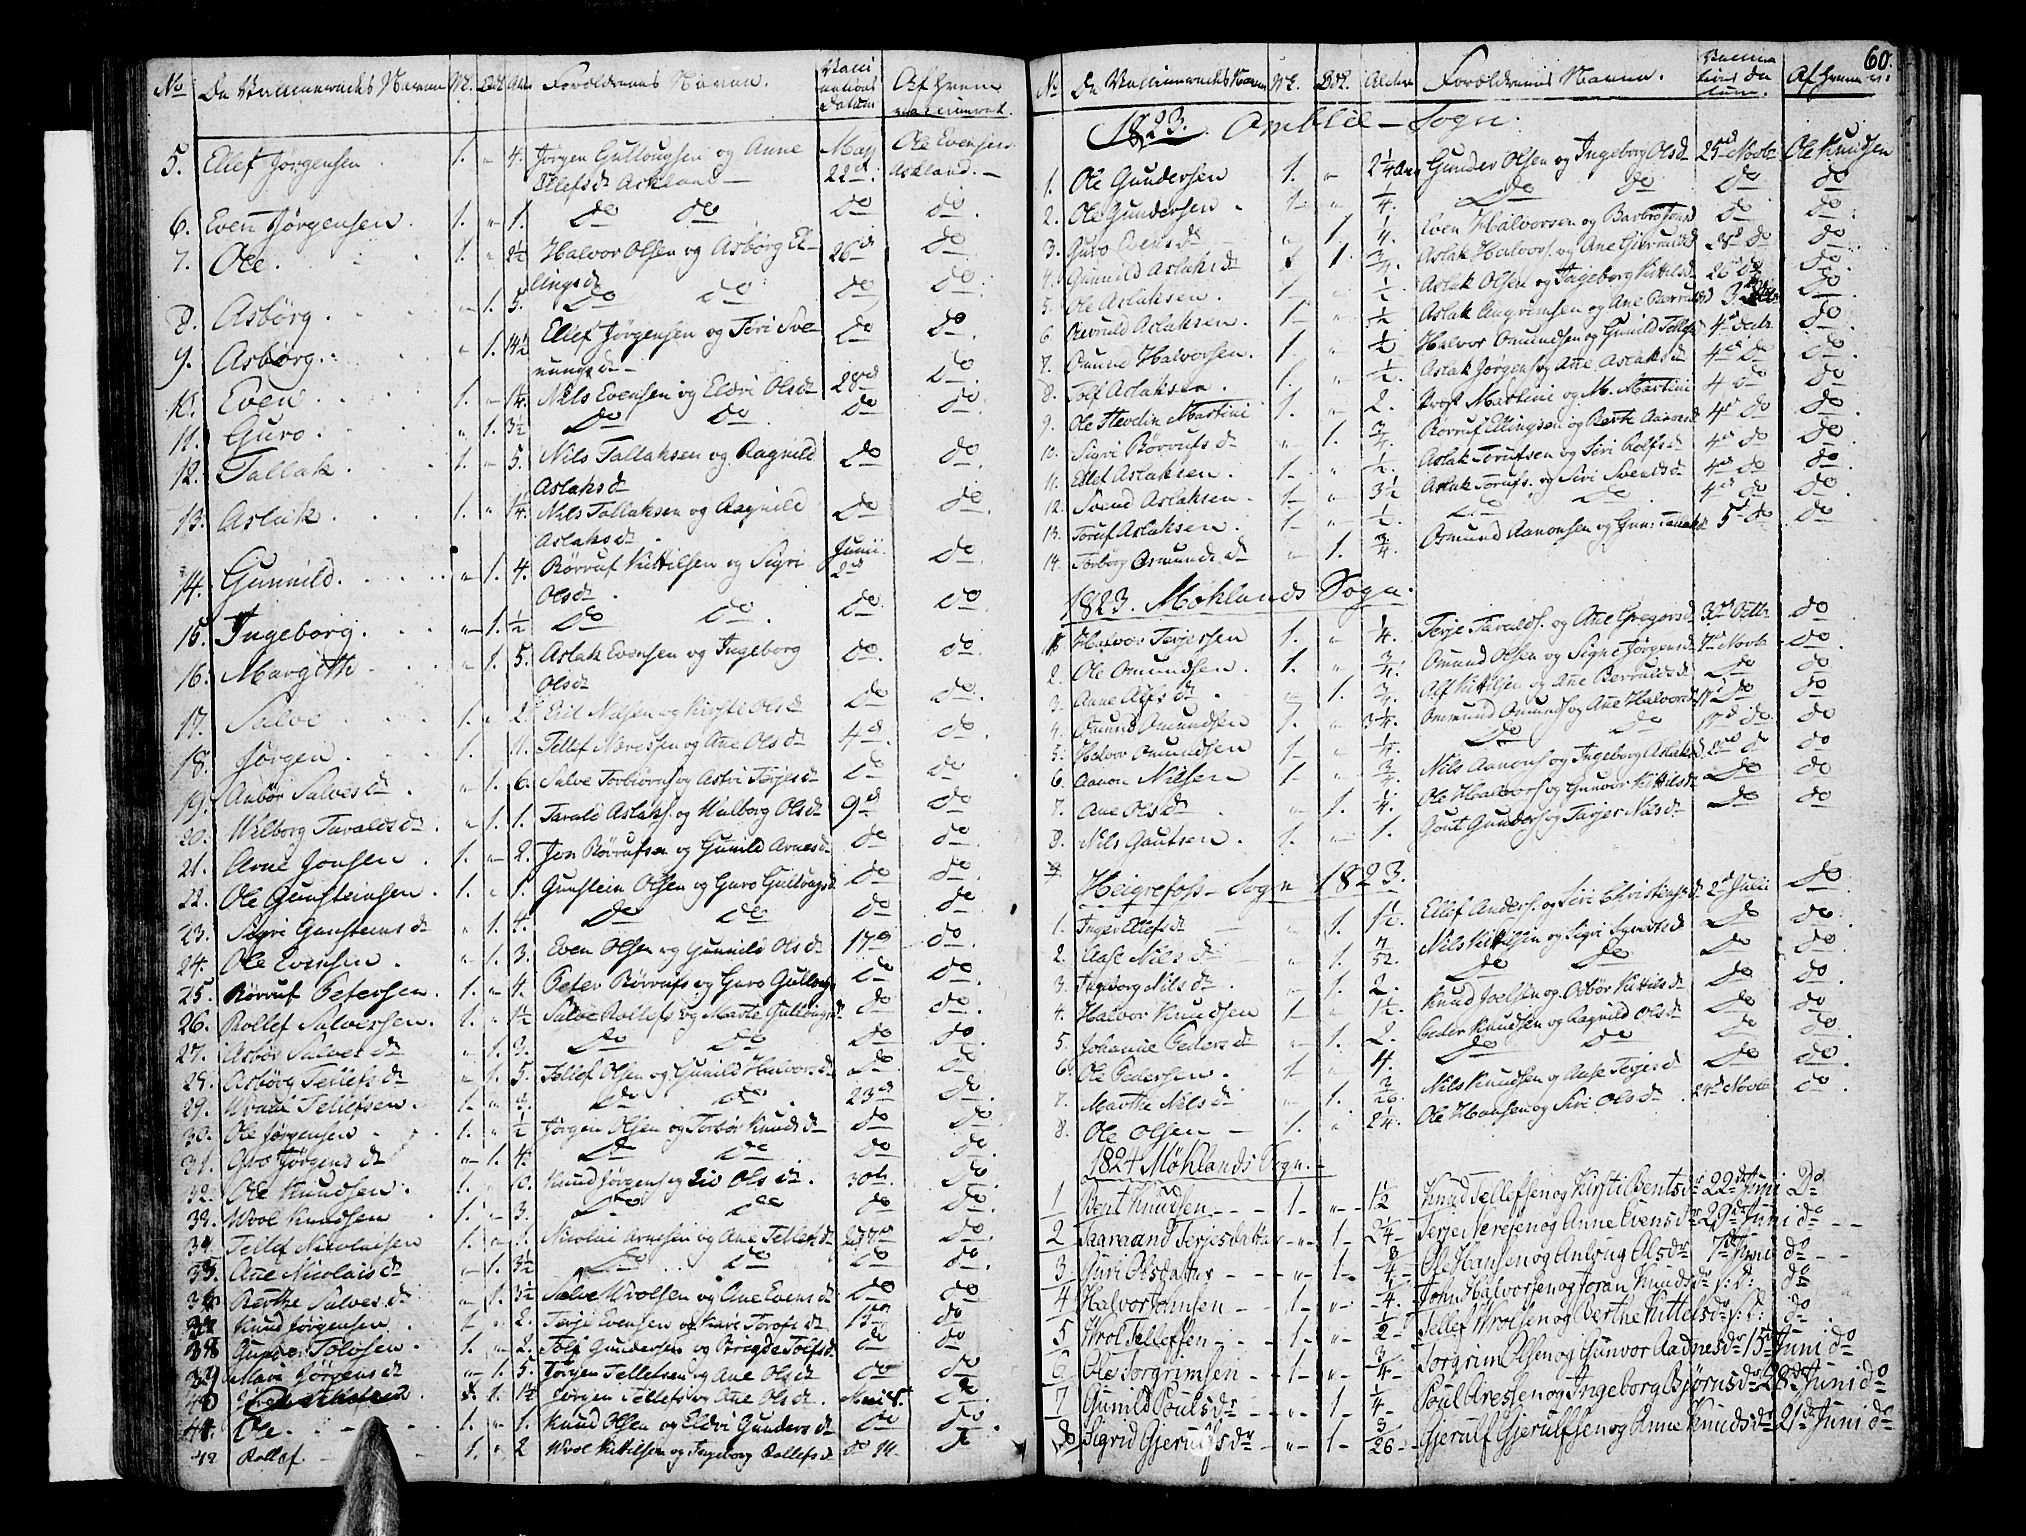 No De Vaccineredes Navne M. Qvk. Ald. Forældrenes Navne. Vaccinations Datum Af hvem vaccineret.
5. Ellef Jørgensen 1. " 4. Jørgen Gullougsen og Anne May Ole Evensen
Ellefsd Askland 22d. Askland.
6. Even Jørgensen. 1. " 1. do do do do.
7. Ole. 1. " 2½ Halvor Olsen og Asbørg El- 26d do
lingsd
8. Asbørg. " 1. 5. do do do do.
9. Asbørg. " 1. 4½ Ellef Jørgensen og Siri Sve- do do
nungsd
10. Even 1. " 1¼ Nils Evensen og Eldri Olsd 28d do.
11. Guro. " 1. 3½ do do do do.
12. Tallak. 1. " 5. Nils Tallaksen og Ragnild do do.
Aslaksd
13. Aslak. 1. " 1¼ Nils Tallaksen og Ragnild do do
Aslaksd.
14. Gunnild. " 1. 4. Rørruf Kittilsen og Sigri Junii 2d do
Olsd.
15. Ingeborg. " 1. ½ do do. do do
16. Margithe " 1. 5. Aslak Evensen og Ingeborg do. do.
Olsd
17. Salve 1. " 2. Eril Nilsen og Kirsti Olsd do do.
18. Jørgen. 1. 11. Tellef Nerersen og Ane Olsd 4d do.
19. Anbør Salvesd. " 1. 6. Salve Torbiørns og Astri Terjesd do do
20. Wilborg Taraldsd. " 1. 1. Tarald Aslaks. og Walborg Olsd 9d do
21. Arne Jonsen. 1. " 2. Jon Rørrufsen og Gunild Arnesd do do.
22. Ole Gunsteinsen. 1. " 1. Gunstein Olsen og Guro Gullougsd. do do.
23. Sigri Gunsteinsd " 1. 4. do do do do.
24. Ole Evensen. " 1. 3. Even Olsen og Gunnild Olsd 17d do.
25. Rørruf Petersen. 1. " 4. Peter Rørrufs og Guro Gullougsd do do.
26. Rollef Salversen. 1. " 1½ Salve Rollefs og Marte Gullougsd do do.
27. Asbør Salvesd " 1. 3. do do do do.
28. Asbørg Tellefsd " 1. 5. Tellef Olsen og Gunild Halvorsd do do
29. Wraal Tellefsen. 1. " do do. 23d do.
30. Ole Jørgensen 1. " ½ Jørgen Olsen og Torbør Knudsd do do
31. Jørgensd " 1. 4. do do. do do.
32. Ole Knudsen. 1. " Knud Jørgens og Liv Olsd. 30t. do.
33. Wrol Knudsen 1. " 3. do do do do.
34. Tellef Nicolaisen 1. " Nicolai Arnesen og Ane Tellefsd do.
35. Ane Nicolaisd " 1. 3½ do do do do.
36 Berthe Salvesd " 1. 3½ Salve Wrolsen og Ane Evensd do do
37 Knud Jørgensen 2. Terje Evensen og Kari Torofsd 15d do
38 Tolfsen. 1. " 2. Tolf Gundersen og Birgite Tolfsd do do
39 Mari Jørgensd " 1. 5. Jørgen Tellefsen og Ane Olsd do do.
40 1. 1½ Jørgen Tellefs og Ane Olsd. do.
41. Ole. 1. " 1. Knud Olsen og Eldri Gundersd do do.
42 Rollef 1. " 2 Wrol Kittilsen og Ingeborg Rollefsd do 14 do
60.
No De Vaccineredes Navne M. Qvk. Alderen Forældrenes Navne. Vaccinations Datum. Af hvem v:
1823. Amblie – Sogn.
1. Ole Gundersen 1. " 2¼ Aar Gunder Olsen og Ingeborg Olsd 25d Novbr Ole Knudsen
2. Ole Gundersen. 1 " ¼. do do do do
3. Guro Evensd " 1 ¼. Even Halvorsen og Barbro do do.
4. Gunnild Aslaksd 1. ¾. Aslak Halvors. og Ane 28d do do.
5. Ole Aslaksen. 1 ½ Aslak Olsen og Ingeborg Kittilsd 26d do do.
6. Aslaksen. 1 ½. Aslak Angrimsen og Ane 3d do.
7. Omund Halvorsen. 1. ½ Halvor Omundsen og Gunild Tellefsd 4d decbr do.
8. Tolf Aslaksen. 1. " ½. Aslak Jørgens og Ane Aslaksd 4d do do.
9. Ole Hevdin Martini 1. " 2. Prost Martini og M. Martini 4 do do
10. Sigri Rørrufsd " 1. ¾. Rorruf Ellingsen og Berte Aanonsd 4d do do.
11. Ellef Aslaksen. 1. " ½. Aslak Torufsen og Siri Rolfsd 4d do do.
12. Svend Aslaksen. 1 " 3½ Aslak Torufs. og Siri Svensd 4d do do.
13. Toruf Aslaksen. 1 " ½. do do 4d do do.
14. Torborg Osmundsd " 1. ¾. Osmund Aanonsen og Gun: Tallaksd 5d do do
1823. Møklands Sogn.
1 Halvor Terjersen 1. " ¼. Terje Taralds. og Ane Gregorsd 3d Octbr do
2. Ole Omundsen. 1. " ¾. Omund Olsen og Signe Jørgensd 7d Novbr do.
3. Anne Alfsd. " 1. ¾. Alf Kittilsen og Ane Berruldsd do do
4. Omund Omundsen 1. " 3¼. Ommund Omunds og Ane Halvorsd 17d do do
5. Halvor Omundsen 1 " ¼. do do 17d do do
6. Aanon Nilsen 1 " ¾. Nils Aanons og Ingeborg Aslaksd 20d do do
7. Ane Olsd. " 1. ¼. Ole Halvors og Gunvor Kittilsd do do
8. Nils Gautsen. 1. 1. Gout Gunders og Terjer Nilsd do do
Heigrefoss – Sogn 1823.
1. Inger Ellefsd " 1. 1½. Ellef Anders. og Siri Christiensd 2d Julii do
2. Aase Nilsd " 1. 7/52. Nils Kittilsen og Sigri Syvertsd do do.
3. Ingeborg Nilsd. " 1. 2. do do do do.
4. Halvor Knudsen 1 " 1½. Knud Joelsen og Asbør Kittilsd do do.
5. Johanne Pedersd " 1. 2. Peder Knudsen og Ragnild Olsd do do.
6. Ole Pedersen. 1 " 4. do do do do.
7. Marthe Nilsd " 1. 3/26. Nils Knudsen og Aase Terjesd do do.
8. Ole Olsen 1. " 2¼. Ole Hansen og Siri Olsd. 24d Novbr do
1824 Møklands Sogn.
1 Bent Knudsen 1 " 1½ Knud Tellefsen og Kirsti Bentsdr 22d Juni do
2 Taaraand Terjesdatter " 1 2¼ Terje Terjesen og Anne Evensdr 29d Juni do
3 Guri Olsdatter " 1 ¾ Ole Hansen og Anlaug Olsdr 7d Juni do
4 Halvor Johnsen 1 " ¼ John Halvorsen og Joran Knudsdr s: d: do
5 Wrol Tellefsen 1 " ½ Tellef Wrolsen og Berthe Kittelsdr s: d: do
6 Ole Torgrimsen 1 " ¾ Torgrim Olsen og Gunvor Aadnesdr 15d Juni do
7 Gunild Poulsdr " 1 ¼ Poul Aresen og Ingeborg Bjørnsdr 28d Juni do
8 Sigrid Gjerulfsdr " 1 3/26 Gjerulf Gjerulfsen og Anne Knudsdr 21d Juni do